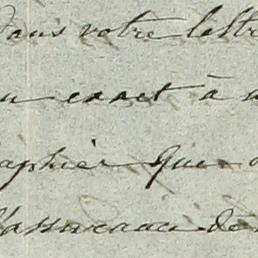 Dans votre lettr
exact à
aphier que
l'assurance de